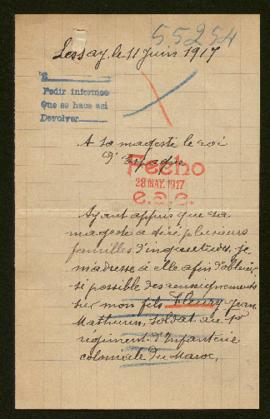 55254
Lessay, le 11 Juin 1917
Pedir informes
Que se hace asi
Devolver
A Sa magesté le roi
D'Espagne
Fecho
28 MAY. 1917
e.a.e.
Ayant appris que sa
magesté a tiré plusieurs
familles d'inquiétudes, je
m'adresse à elle afin d'obtenir
si possible des renseignements
sur mon fils Fleury Jean
Mathurin, soldat au 1er
régiment d'Infanterie
coloniale du Maroc,